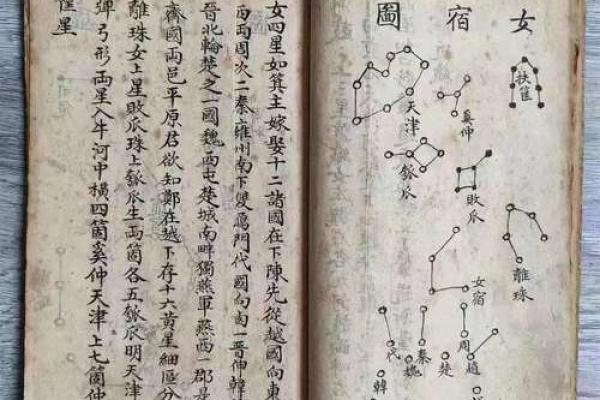 女宿圖
扶筐
天津
奚仲
瓠瓜
敗瓜
離珠
女宿
周
秦
代
趙
楚
魏
韓
女四星如箕主嫁娶十二諸國在下陳先從越國向東
西兩周次二秦雍州南下雙鴈門代國向南一晉伸韓
晉北輪楚之一國魏西屯楚城南畔獨燕軍燕西一郡是
齊國兩邑平原君欲知鄭在越下存十六黃星細區分
離珠女上星敗瓜珠上瓠瓜生兩箇各五瓠瓜明天津
彈弓形兩星入牛河中橫四箇奚仲天津上七箇仲
筐星